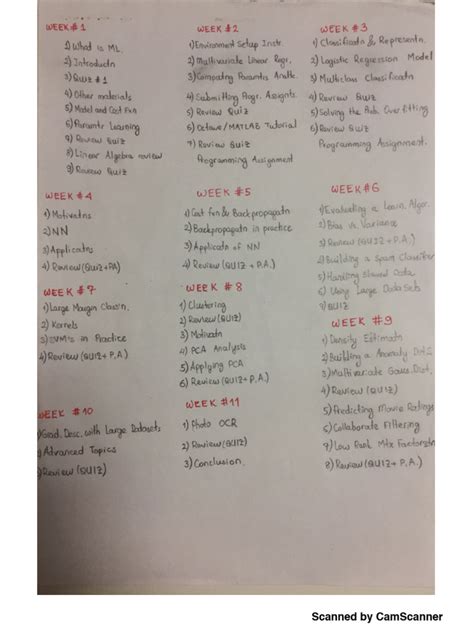 WEEK #1
1) What is ML.
2) Introductn
3) Quiz #1
4) Other materials
5) Model and Cost Fxn
6) Paramtr Learning
7) Review Quiz
8) Linear Algebra review
9) Review Quiz
WEEK #2
1) Environment Setup Instr.
2) Multivariate Linear Regr.
3) Computing Paramtrs Analtc.
4) Submitting Progr. Assignts.
5) Review Quiz
6) Octave/MATLAB Tutorial
7) Review Quiz
Programming Assignment
WEEK #3
1) Classificatn & Representn.
2) Logistic Regression Model
3) Multiclass Classificatn
4) Review Quiz
5) Solving the Pob. Overfitting
6) Review Quiz
Programming Assignment.
WEEK #4
1) Motivatns
2) NN
3) Applicatns
4) Review (Quiz+PA)
WEEK #5
1) Cost fxn & Backpropagatn
2) Backpropagatn in practice
3) Applicatn of NN
4) Review (QUIZ + P.A.)
WEEK #6
1) Evaluating a Learn. Algor.
2) Bias vs Variance
3) Review (QUIZ + P.A.)
4) Building a spam Classifier
5) Handling Skewed Data
6) Using Large Data Sets
8) Review (QUIZ + P.A.)
WEEK #7
1) Large Margin Classn.
2) Kernels
3) SVM's in Practice
4) Review (QUIZ+ P.A.)
WEEK #8
1) Clustering
2) Review (QUIZ)
3) Motivatn
4) PCA Analysis
5) Applying PCA
6) Review (QUIZ+ P.A.)
WEEK #9
1) Density Estimatn
2) Building a Anomaly Det.S
3) Multivariate Gauss. Dist.
4) Review (QUIZ)
5) Predicting Movie Ratings
6) Collaborate Filtering
7) Low Rank Mtx Factorztn
8) Review (QUIZ + P.A.)
WEEK #10
1) Grad. Desc. with Large Datasets
2) Advanced Topics
3) Review (QUIZ)
WEEK #11
1) Photo OCR
2) Review (QUIZ)
3) Conclusion.
Scanned by CamScanner